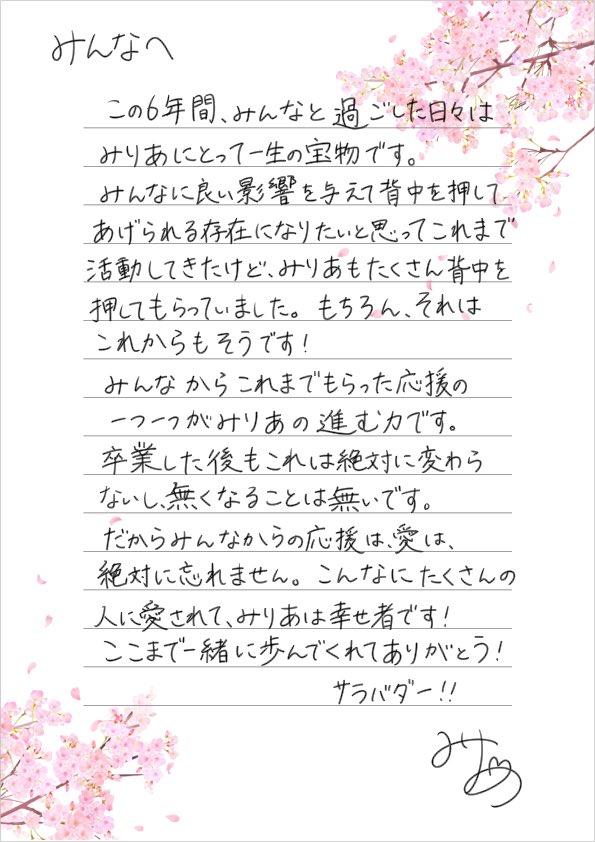 みんなへ
この6年間、みんなと過ごした日々は
みりあにとって一生の宝物です。
みんなに良い影響を与えて背中を押して
あげられる存在になりたいと思ってこれまで
活動してきたけど、みりあもたくさん背中を
押してもらっていました。もちろん、それは
これからもそうです！
みんなからこれまでもらった応援の
一つ一つがみりあの進む力です。
卒業した後もこれは絶対に変わら
ないし、無くなることは無いです。
だからみんなからの応援は、愛は、
絶対に忘れません。こんなにたくさんの
人に愛されて、みりあは幸せ者です！
ここまで一緒に歩んでくれてありがとう！
サラバダー！！
みりあ